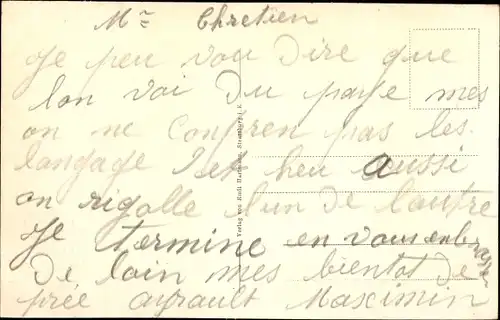 Mr Chretien
Je peu vou dire que
lon voi du paye mes
on ne conpren pas les
langage heu aussi
on rigolle lun de lautre
Je termine en vous enbrassen
De loin mes bientot de
prée ayrault Maximin
Verlag von Rudi Hartmann, Strassburg i. E.